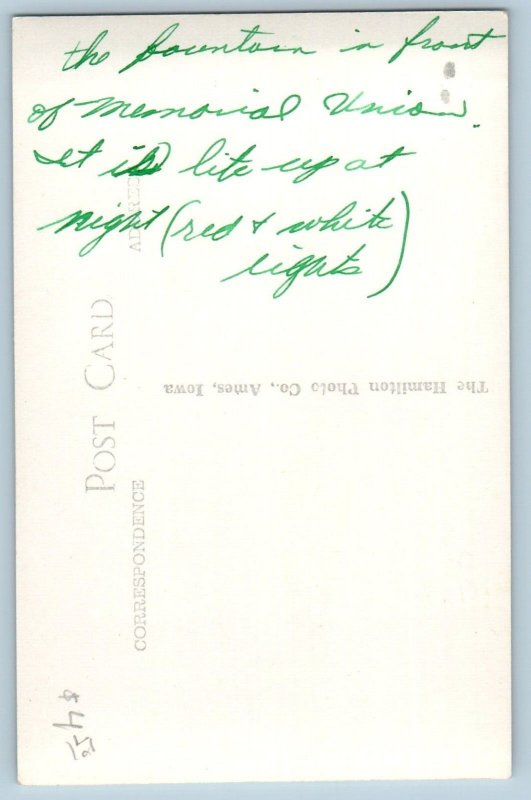 the fountain in front
of Memorial Union.
It is lite up at
night (red & white
lights)
POST CARD
ADDRESS
CORRESPONDENCE
The Hamilton Photo Co., Ames, Iowa